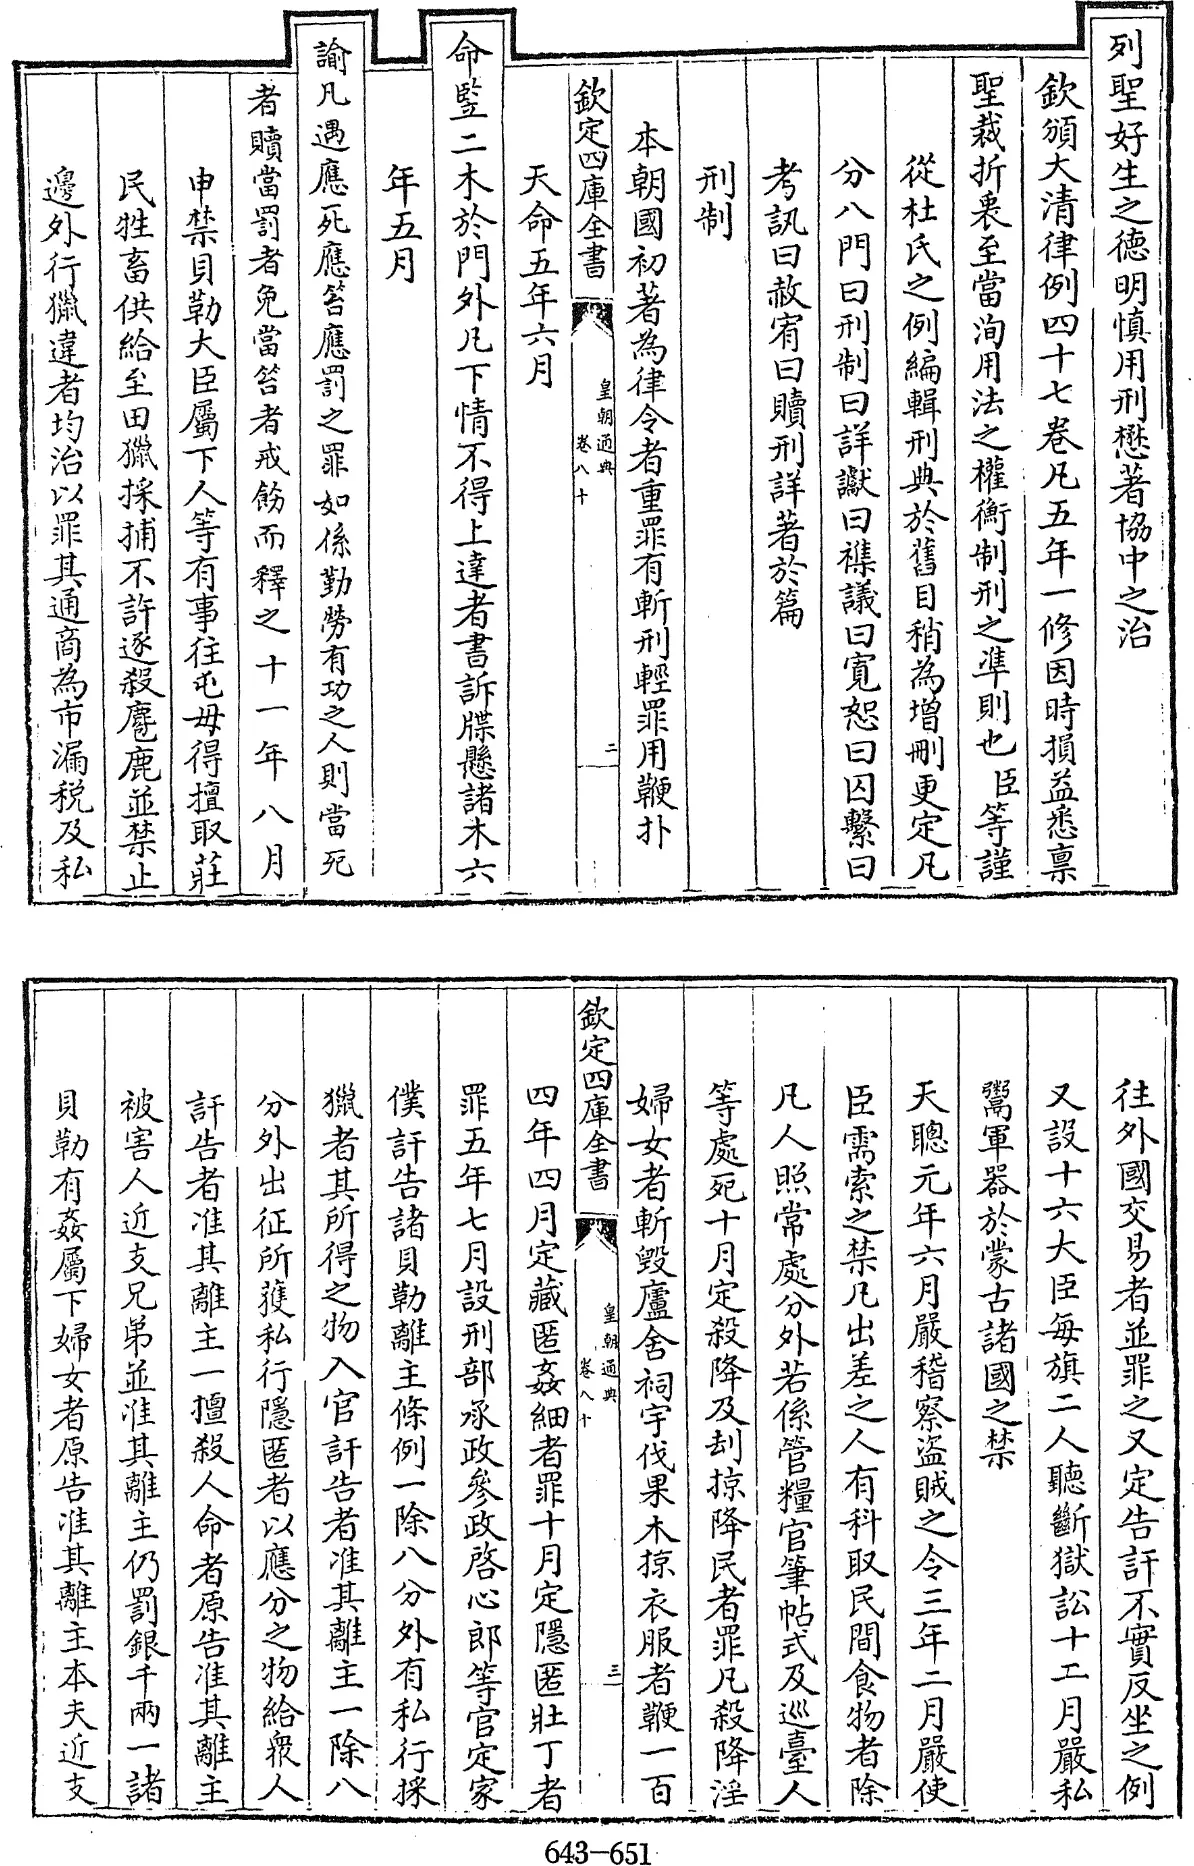 列聖好生之德明慎用刑懋著協中之治
欽頒大清律例四十七卷凡五年一修因時損益悉禀
聖裁折衷至當洵用法之權衡制刑之準則也臣等謹
從杜氏之例編輯刑典於舊目稍為增刪更定凡
分八門曰刑制曰詳讞曰襍議曰寛恕曰囚繫曰
考訊曰赦宥曰贖刑詳著於篇
刑制
本朝國初著為律令者重罪有斬刑輕罪用鞭扑
欽定四庫全書
皇朝通典
卷八十
二
天命五年六月
命監二木於門外凡下情不得上達者書訴牒懸諸木六
年五月
諭凡遇應死應笞應罰之罪如係勤勞有功之人則當死
者贖當罰者免當笞者戒飭而釋之十一年八月
申禁貝勒大臣屬下人等有事往屯毋得擅取莊
民牲畜供給至田獵採捕不許逐殺麅鹿並禁止
邊外行獵違者均治以罪其通商為市漏稅及私
往外國交易者並罪之又定告訐不實反坐之例
又設十六大臣每旗二人聽斷獄訟十二月嚴私
鬻軍器於蒙古諸國之禁
天聰元年六月嚴稽察盜賊之令三年二月嚴使
臣需索之禁凡出差之人有科取民間食物者除
凡人照常處分外若係管糧官筆帖式及巡臺人
等處死十月定殺降及刦掠降民者罪凡殺降淫
婦女者斬毀廬舍祠宇伐果木掠衣服者鞭一百
欽定四庫全書
皇朝通典
卷八十
三
四年四月定藏匿姦細者罪十月定隱匿壯丁者
罪五年七月設刑部承政參政啓心郎等官定家
僕訐告諸貝勒離主條例一除八分外有私行採
獵者其所得之物入官訐告者准其離主一除八
分外出征所獲私行隱匿者以應分之物給衆人
訐告者准其離主一擅殺人命者原告准其離主
被害人近支兄弟並准其離主仍罰銀千兩一諸
貝勒有姦屬下婦女者原告准其離主本夫近支
643-651